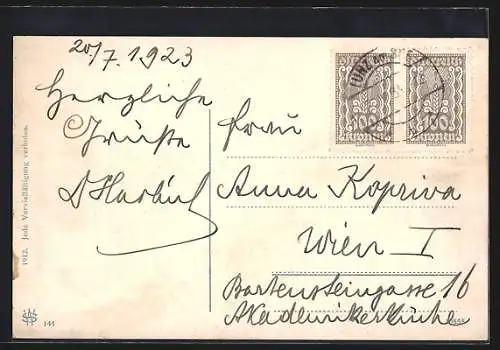 20/7.1923
Herzliche
Grüße
Frau
Anna Kopriva
Wien I
Bartensteingasse 16
Akademikerküche
LUNZ am
100 100
Kronen Kronen
1912. Jede Vervielfältigung verboten.
141